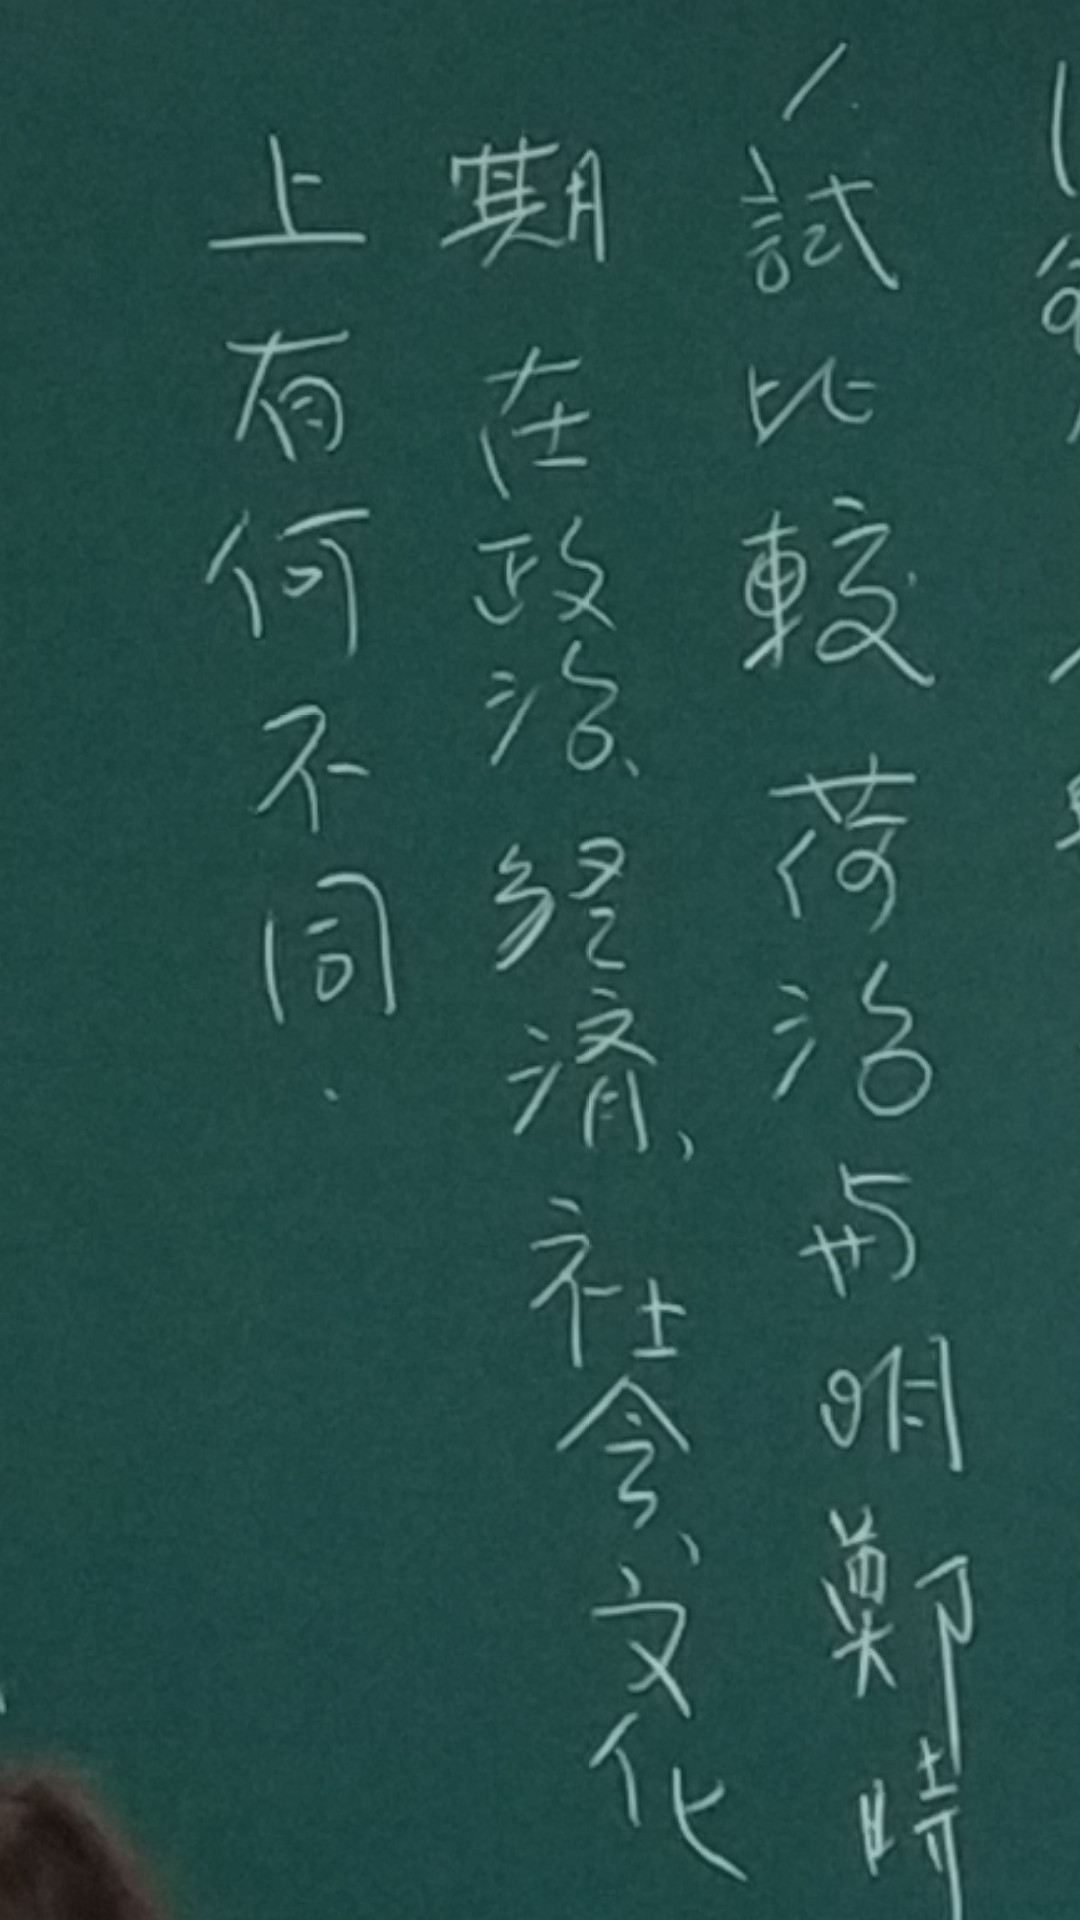 1.試比較荷治與明鄭時
期在政治、經濟、社會、文化
上有何不同.